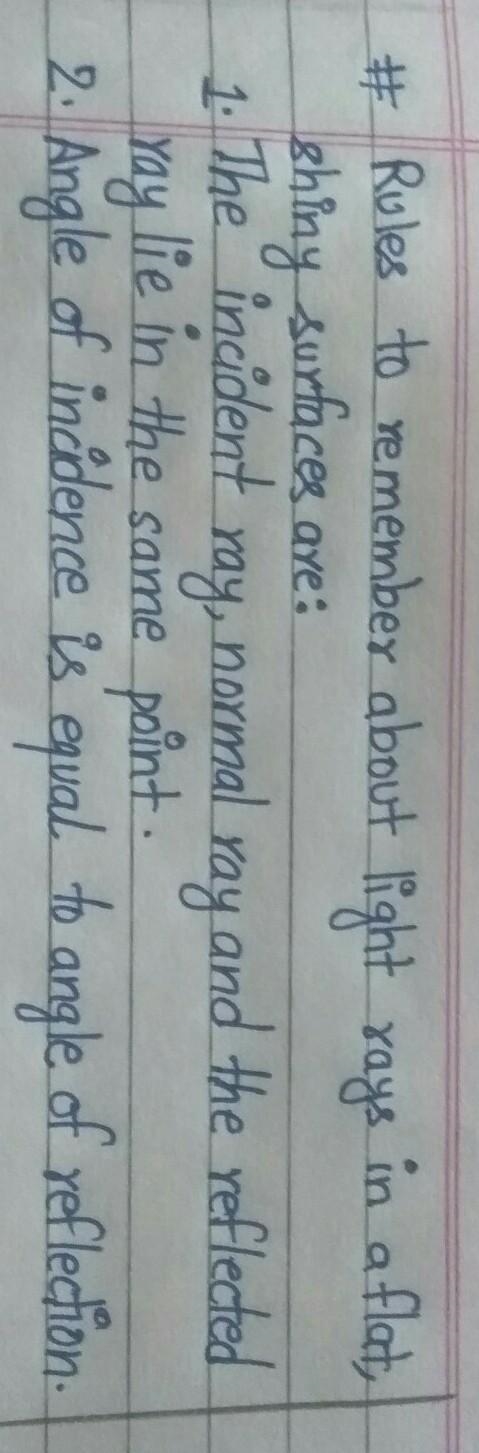 # Rules to remember about light rays in a flat,
shiny surfaces are:
1. The incident ray, normal ray and the reflected
ray lie in the same point.
2. Angle of incidence is equal to angle of reflection.